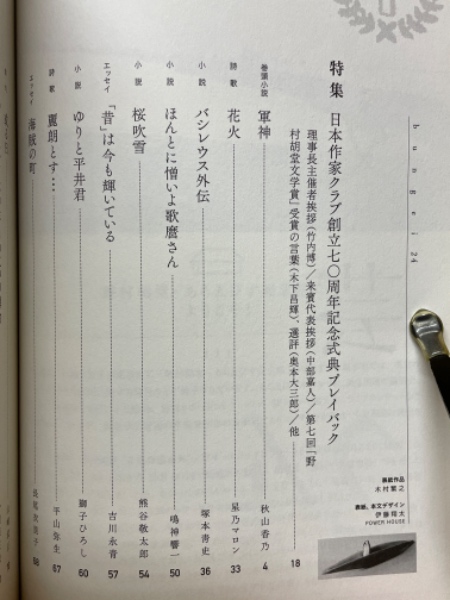 bungei 24
特集 日本作家クラブ創立七〇周年記念式典プレイバック
理事長主催者挨拶(竹内博)/来賓代表挨拶(中部嘉人)/第七回「野
村胡堂文学賞」受賞の言葉(木下昌輝)、選評(奥本大三郎)/他 18
巻頭小説 軍神 秋山香乃 4
詩歌 花火 星乃マロン 33
小説 バシレウス外伝 塚本靑史 36
小説 ほんとに憎いよ歌麿さん 鳴神響一 50
小説 桜吹雪 熊谷敬太郎 54
エッセイ 「昔」は今も輝いている 吉川永青 57
小説 ゆりと平井君 獅子ひろし 60
詩歌 麗朗とす… 平山弥生 67
エッセイ 海賊の町
表紙作品
木村繁之
表紙、本文デザイン
伊藤翔太
POWER HOUSE